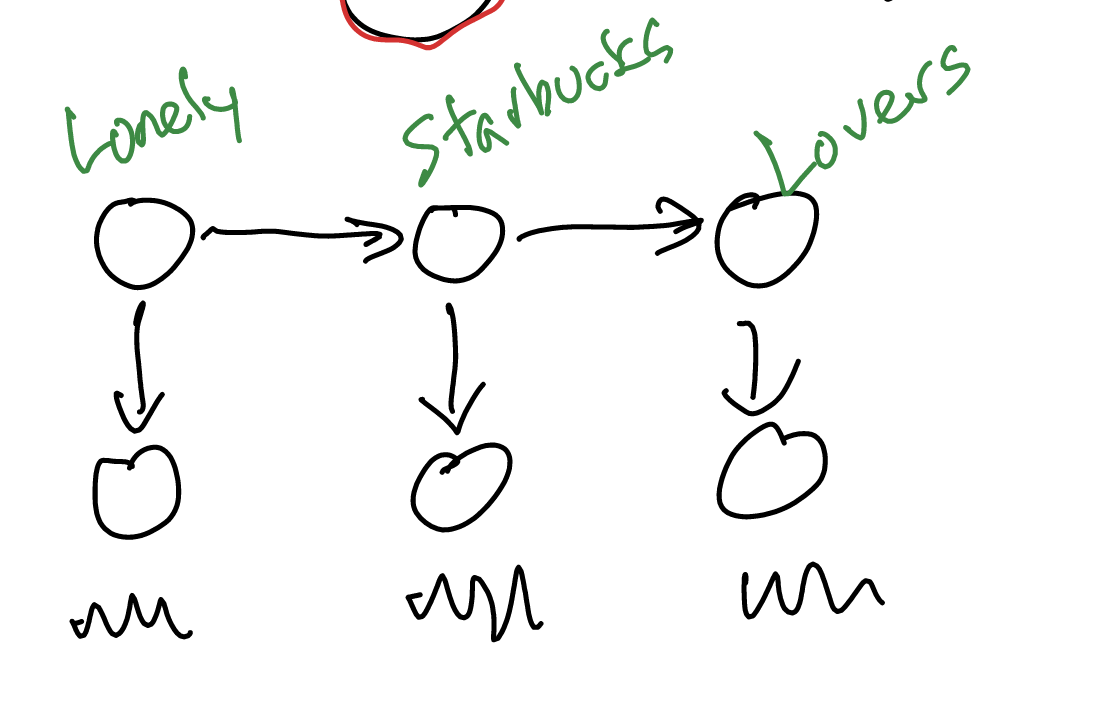 Lonely Starbucks Lovers